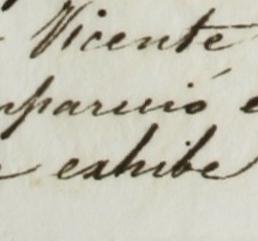 Vicente
mpareció e
exhibe